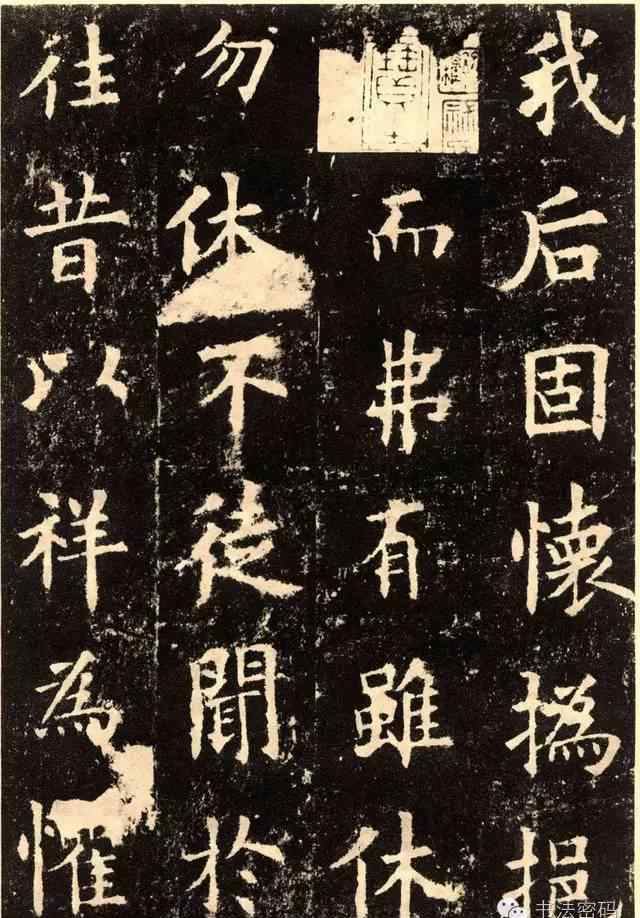 我后固懷撝挹
而弗有雖休
勿休不徒聞於
往昔以祥為懼
书法密码